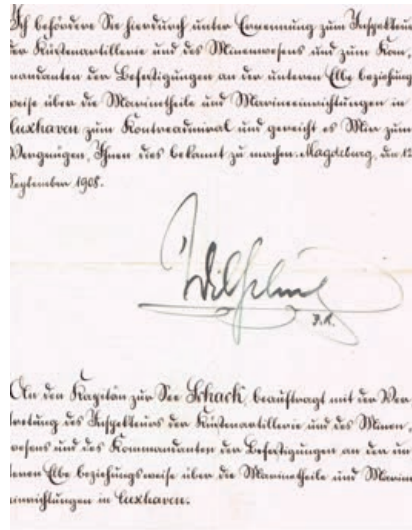 Ich befördere Sie hierdurch unter Ernennung zum Inspekteur
der Küstenartillerie und des Minenwesens und zum Kom-
mandanten der Befestigungen an der unteren Elbe beziehungs
weise über die Marinetheile und Marineeinrichtungen in
Cuxhaven zum Kontreadmiral und gereicht es Mir zum
Vergnügen, Ihnen dies bekannt zu machen. Magdeburg, den 12
September 1908.
Wilhelm
I.R.
An den Kapitän zur See Schack, beauftragt mit der Ver
tretung des Inspekteurs der Küstenartillerie und des Minen-
wesens und des Kommandanten der Befestigungen an der un
teren Elbe beziehungsweise über die Marinetheile und Marine
einrichtungen in Cuxhaven.